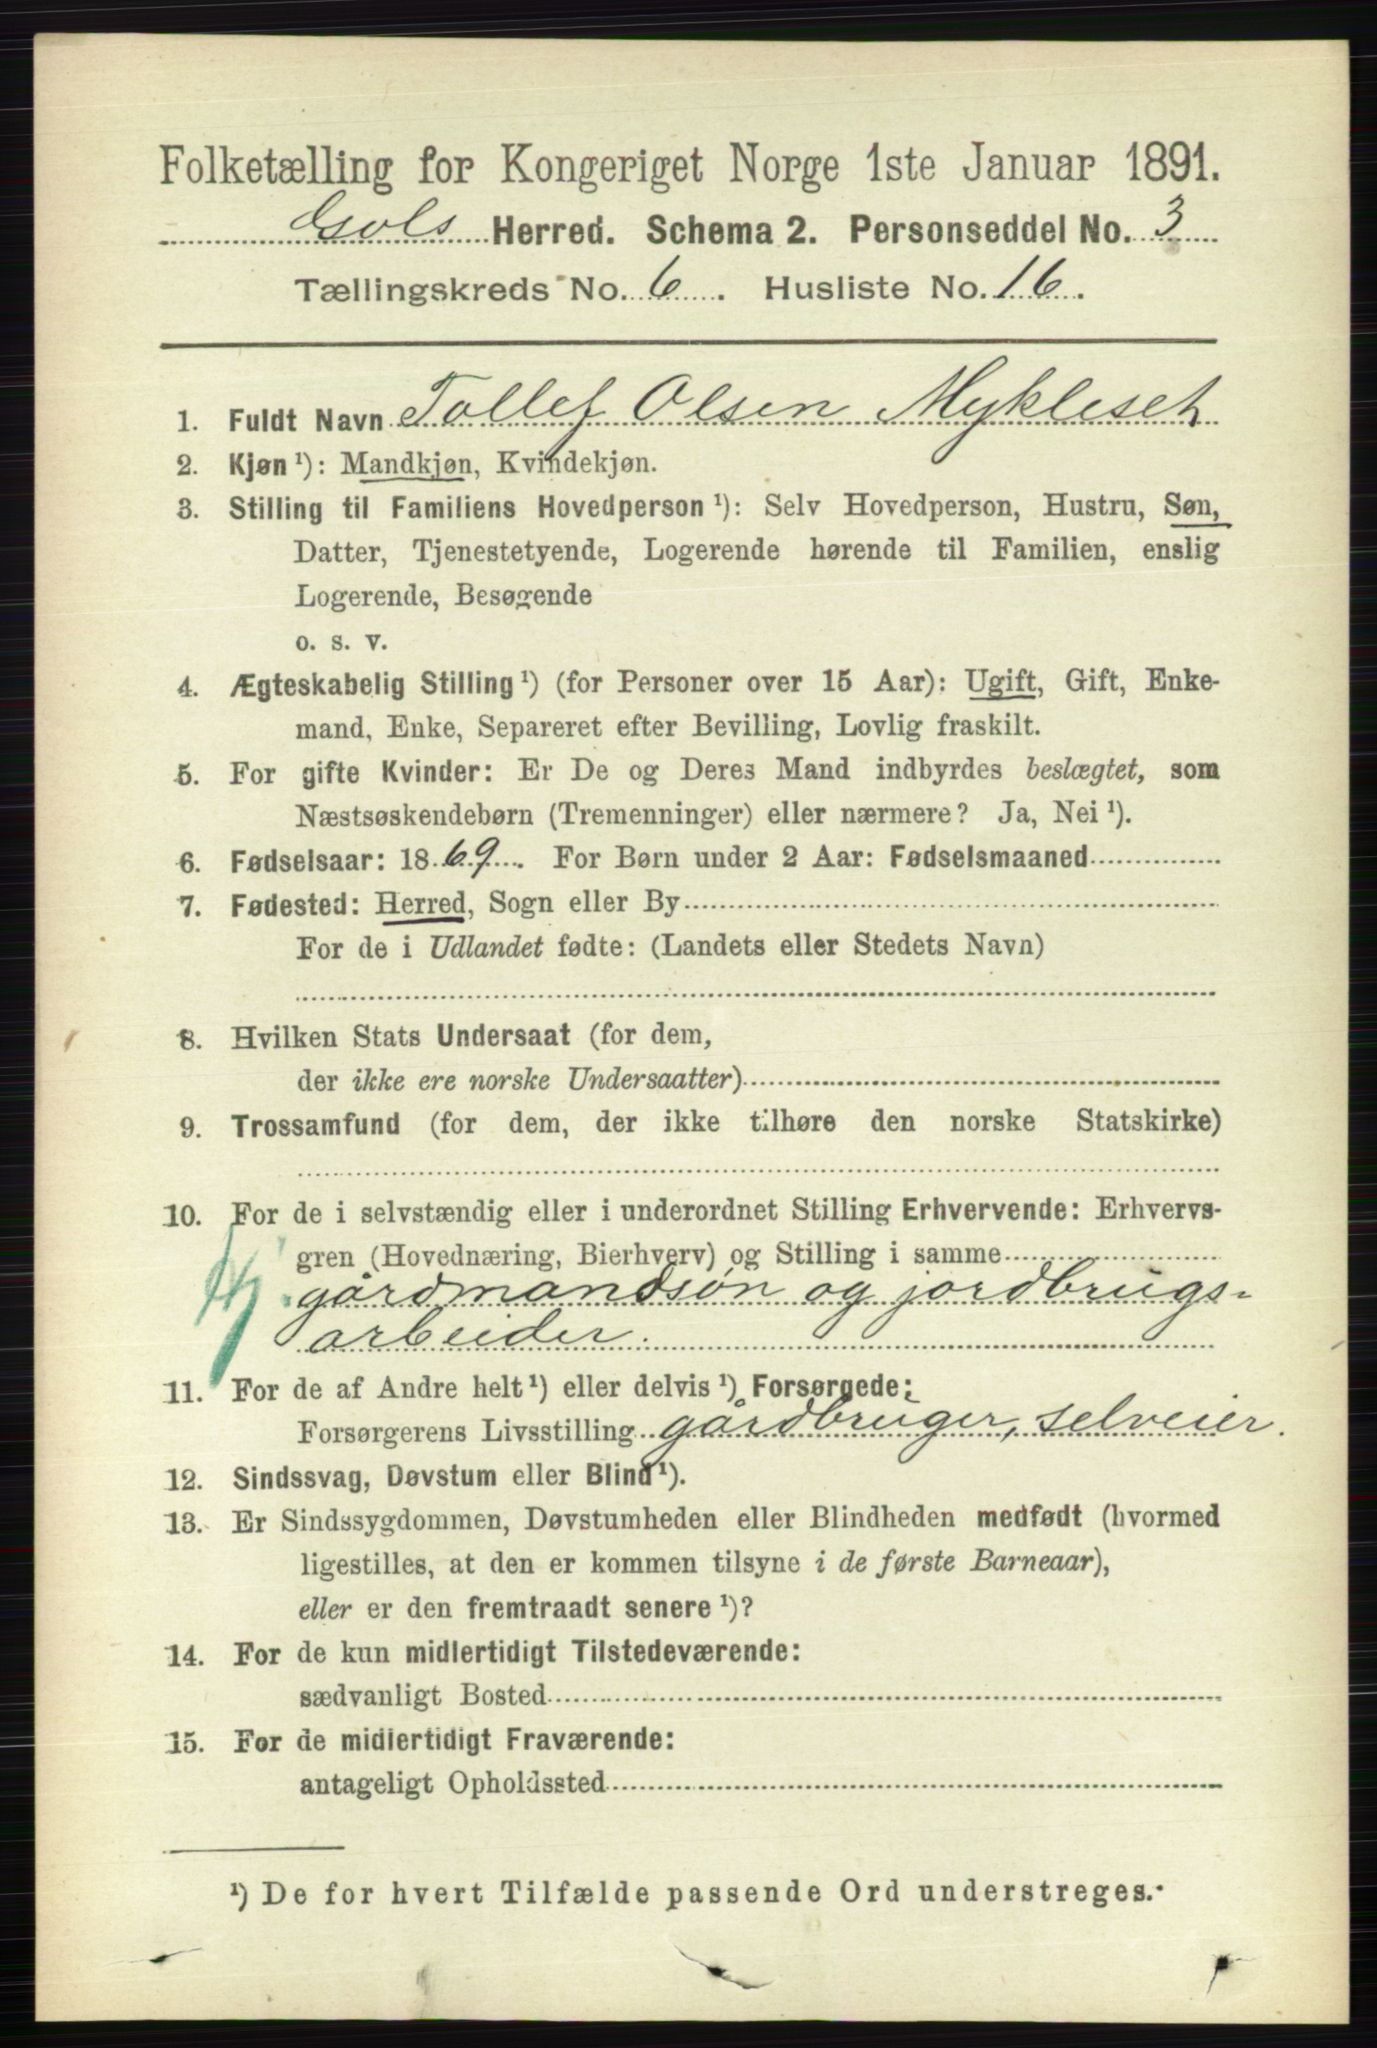 Folketælling for Kongeriget Norge 1ste Januar 1891.
Gols Herred. Schema 2. Personseddel No. 3
Tællingskreds No. 6. Husliste No. 16.
1. Fuldt Navn Tollef Olsen Mykleset
2. Kjøn ¹): Mandkjøn, Kvindekjøn.
3. Stilling til Familiens Hovedperson ¹): Selv Hovedperson, Hustru, Søn,
Datter, Tjenestetyende, Logerende hørende til Familien, enslig
Logerende, Besøgende
o. s. v.
4. Ægteskabelig Stilling ¹) (for Personer over 15 Aar): Ugift, Gift, Enke-
mand, Enke, Separeret efter Bevilling, Lovlig fraskilt.
5. For gifte Kvinder: Er De og Deres Mand indbyrdes beslægtet, som
Næstsøskendebørn (Tremenninger) eller nærmere? Ja, Nei ¹).
6. Fødselsaar: 1869. For Børn under 2 Aar: Fødselsmaaned
7. Fødested: Herred, Sogn eller By
For de i Udlandet fødte: (Landets eller Stedets Navn)
8. Hvilken Stats Undersaat (for dem,
der ikke ere norske Undersaatter)
9. Trossamfund (for dem, der ikke tilhøre den norske Statskirke)
10. For de i selvstændig eller i underordnet Stilling Erhvervende: Erhvervs-
gren (Hovednæring, Bierhverv) og Stilling i samme
gårdmandsøn og jordbrugs-
arbeider.
11. For de af Andre helt ¹) eller delvis ¹) Forsørgede:
Forsørgerens Livsstilling gårdbruger, selveier.
12. Sindssvag, Døvstum eller Blind ¹).
13. Er Sindssygdommen, Døvstumheden eller Blindheden medfødt (hvormed
ligestilles, at den er kommen tilsyne i de første Barneaar),
eller er den fremtraadt senere ¹)?
14. For de kun midlertidigt Tilstedeværende:
sædvanligt Bosted
15. For de midlertidigt Fraværende:
antageligt Opholdssted
¹) De for hvert Tilfælde passende Ord understreges.